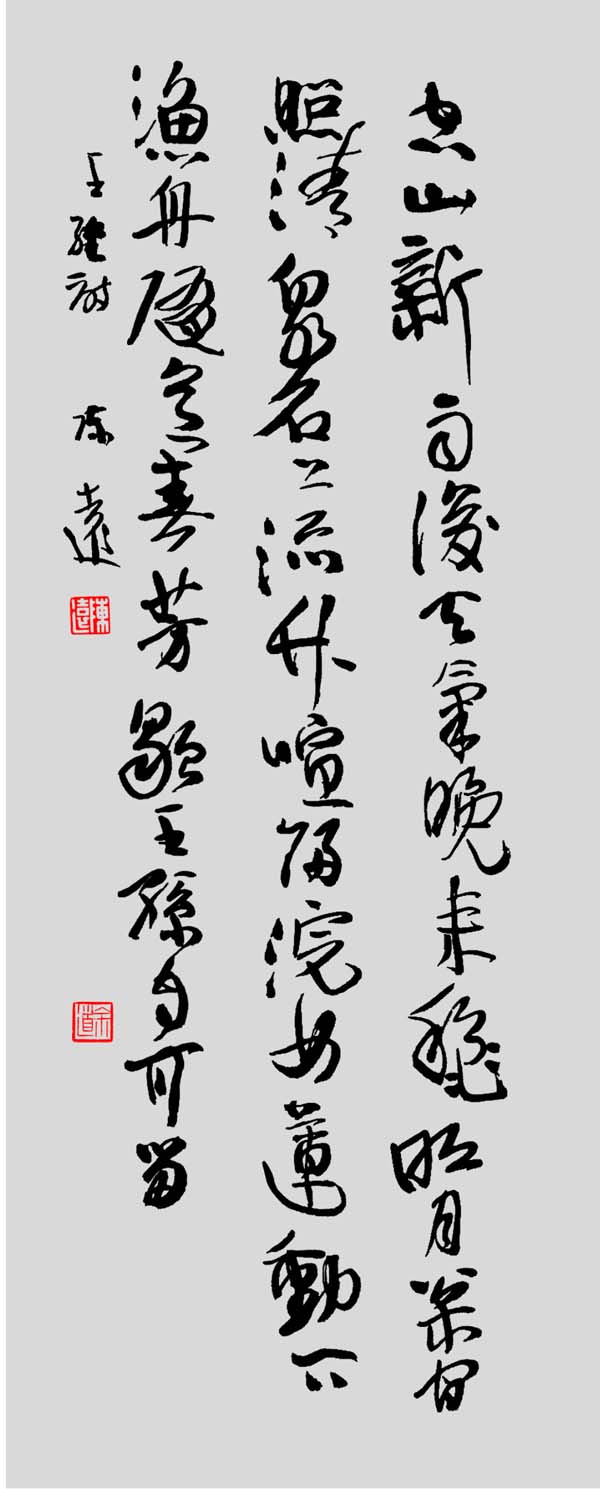 空山新雨後天氣晚來秋明月松間
照清泉石上流竹喧歸浣女蓮動下
漁舟隨意春芳歇王孫自可留
王維詩 陳遠
陳遠